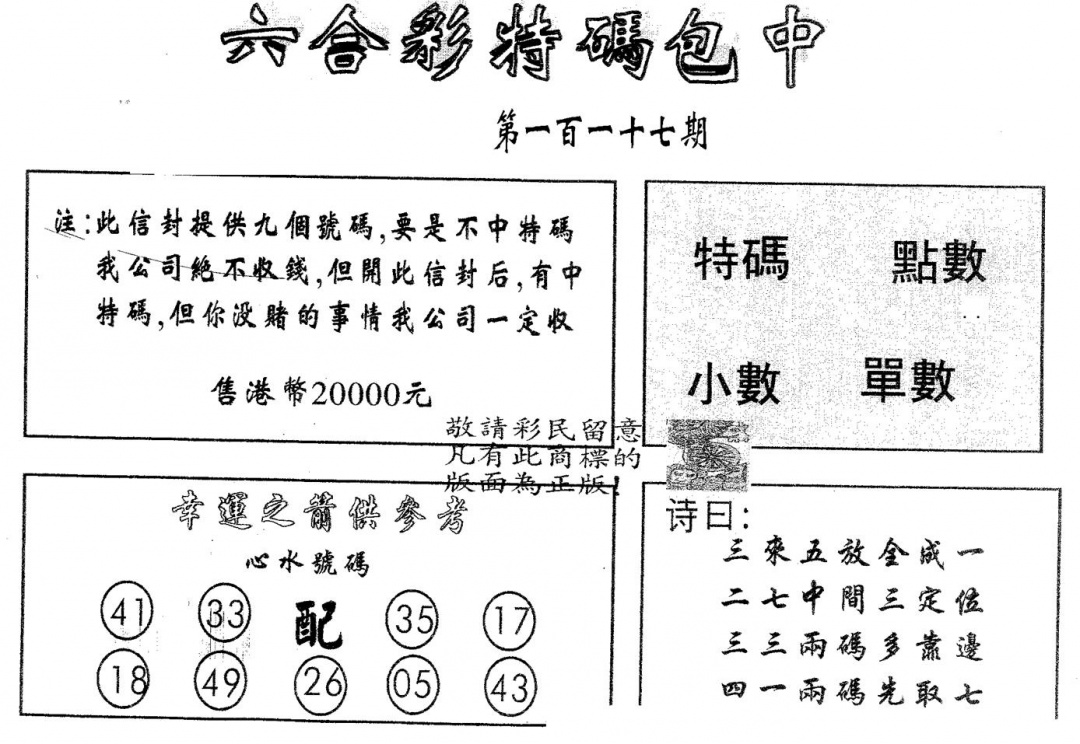 六合彩特碼包中
第一百一十七期
注:此信封提供九個號碼,要是不中特碼
我公司絕不收錢,但開此信封后,有中
特碼,但你没賭的事情我公司一定收
售港幣20000元
特碼 點數
小數 單數
敬請彩民留意
凡有此商標的
版面為正版!
幸運之箭供參考
心水號碼
41 33 配 35 17
18 49 26 05 43
诗曰:
三來五放全成一
二七中間三定位
三三兩碼多靠邊
四一兩碼先取七